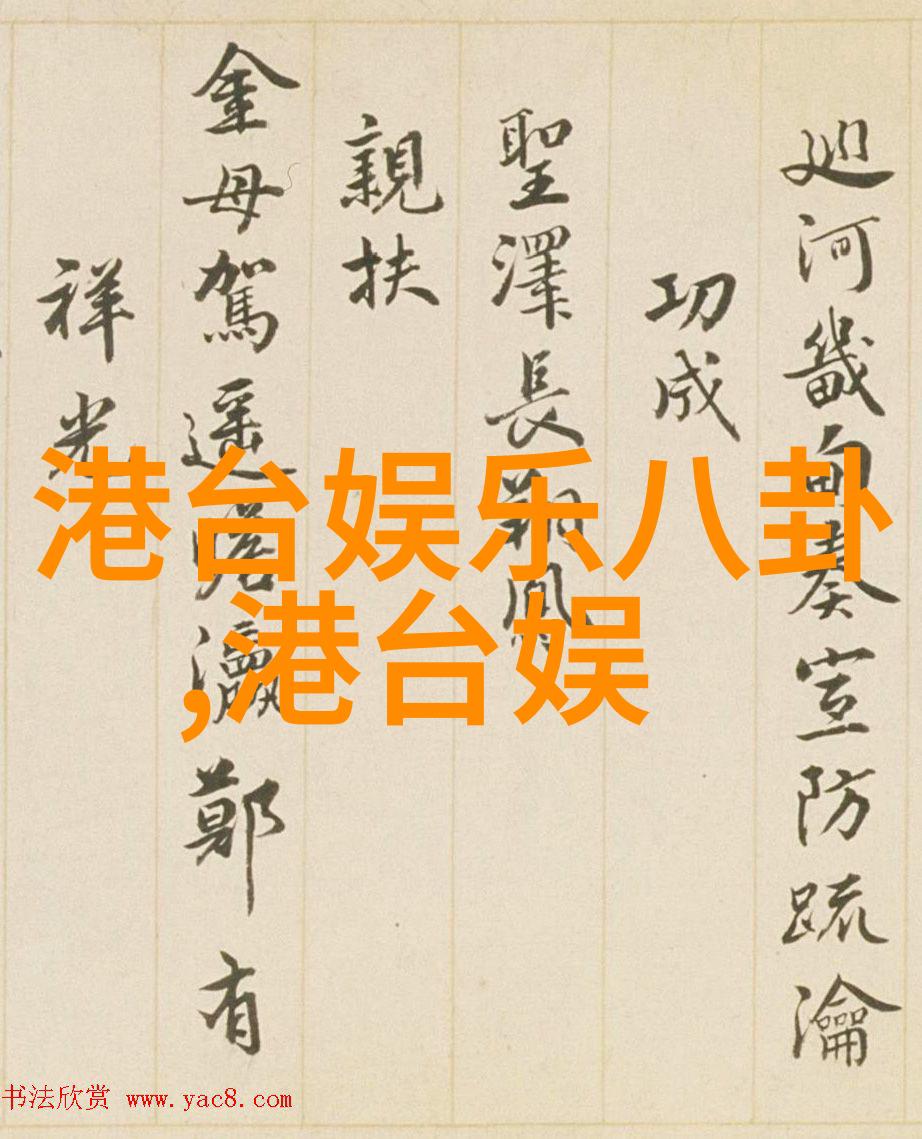 廵河畿甸奏宣防疏瀹
功成
聖澤長翔鳳
親扶
金母駕遥瞻瀛鄭有
祥光
港台娱乐八卦
,港台娱
书法欣赏 www.yac8.com